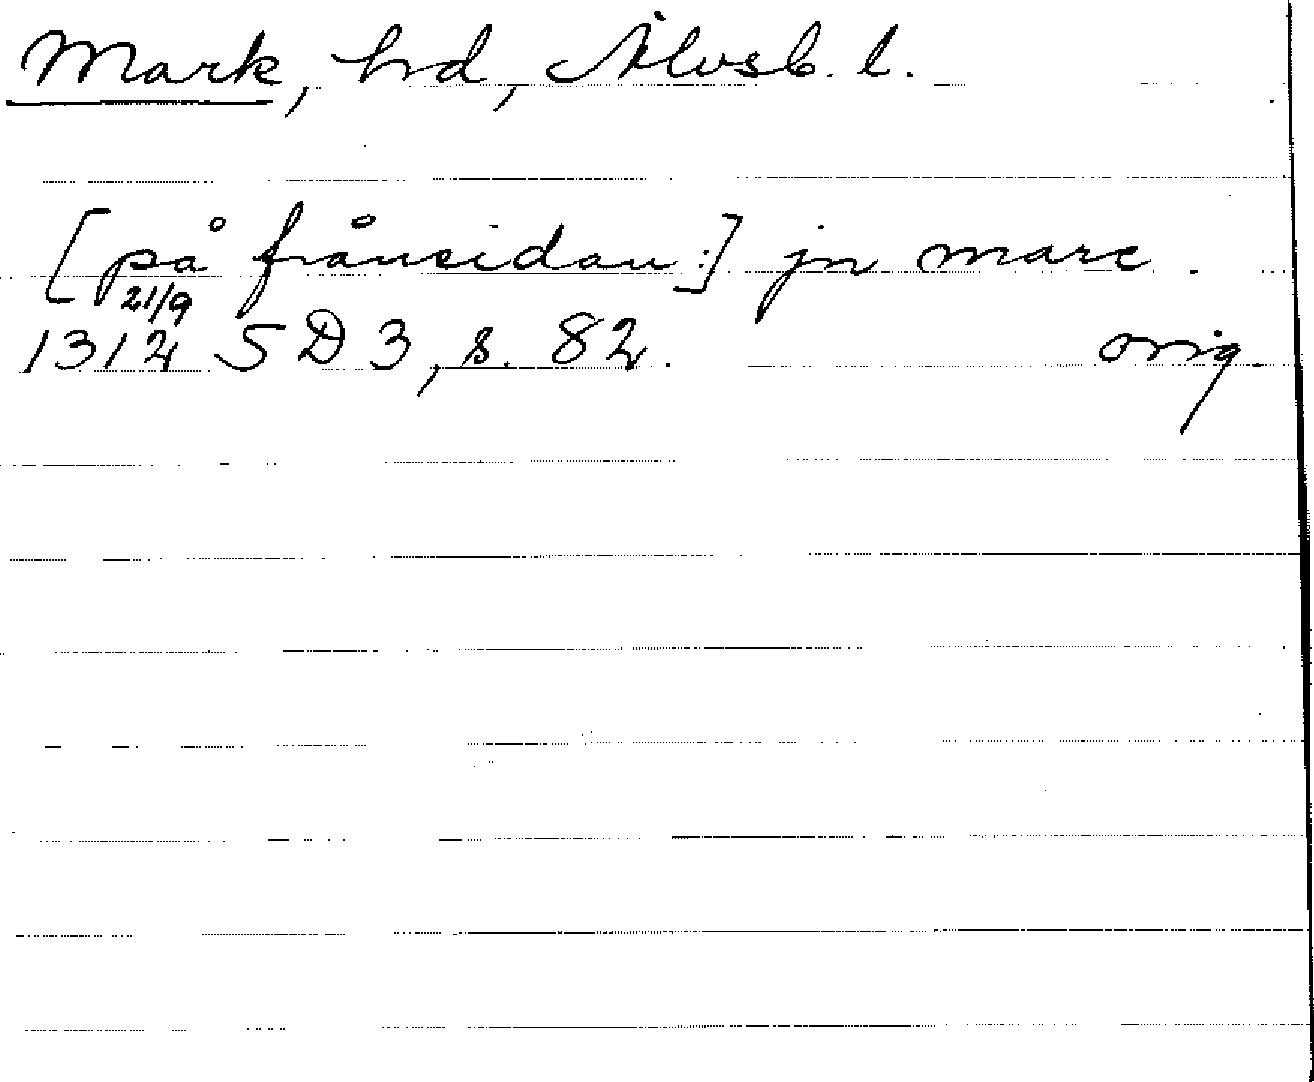 Mark, hd, Älvsb. l.
[på frånsidan:] jn marc.
21/9
1312 SD 3, s. 82. orig.